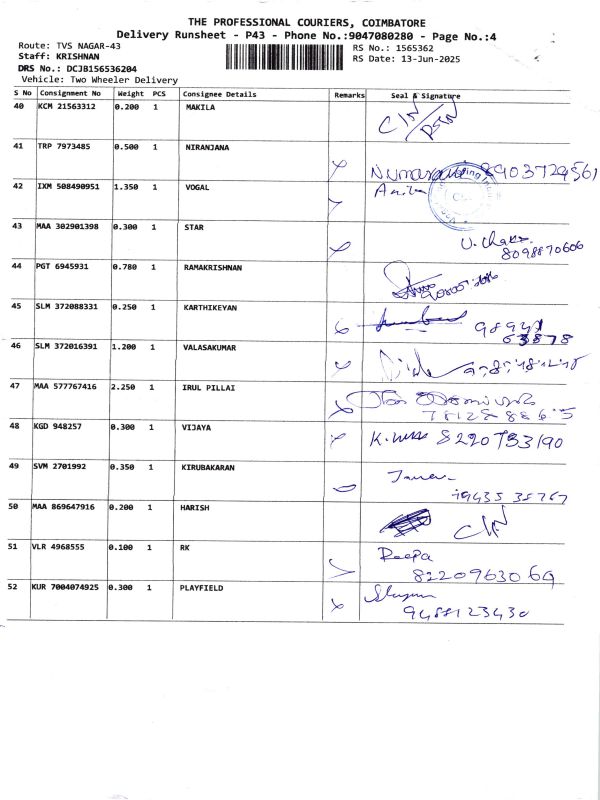 THE PROFESSIONAL COURIERS, COIMBATORE
Delivery Runsheet - P43 - Phone No.:9047080280 - Page No.:4
Route: TVS NAGAR-43 RS No.: 1565362
Staff: KRISHNAN RS Date: 13-Jun-2025
DRS No.: DCJB156536204
Vehicle: Two Wheeler Delivery
S No Consignment No Weight PCS Consignee Details Remarks Seal & Signature
40 KCM 21563312 0.200 1 MAKILA
41 TRP 7973485 0.500 1 NIRANJANA
8903729561
42 IXM 508490951 1.350 1 VOGAL
43 MAA 302901398 0.300 1 STAR
8098870606
44 PGT 6945931 0.780 1 RAMAKRISHNAN
45 SLM 372088331 0.250 1 KARTHIKEYAN
46 SLM 372016391 1.200 1 VALASAKUMAR
47 MAA 577767416 2.250 1 IRUL PILLAI
48 KGD 948257 0.300 1 VIJAYA 8220733190
49 SVM 2701992 0.350 1 KIRUBAKARAN
50 MAA 869647916 0.200 1 HARISH
51 VLR 4968555 0.100 1 RK Deepa
8220963069
52 KUR 7004074925 0.300 1 PLAYFIELD
9488123430